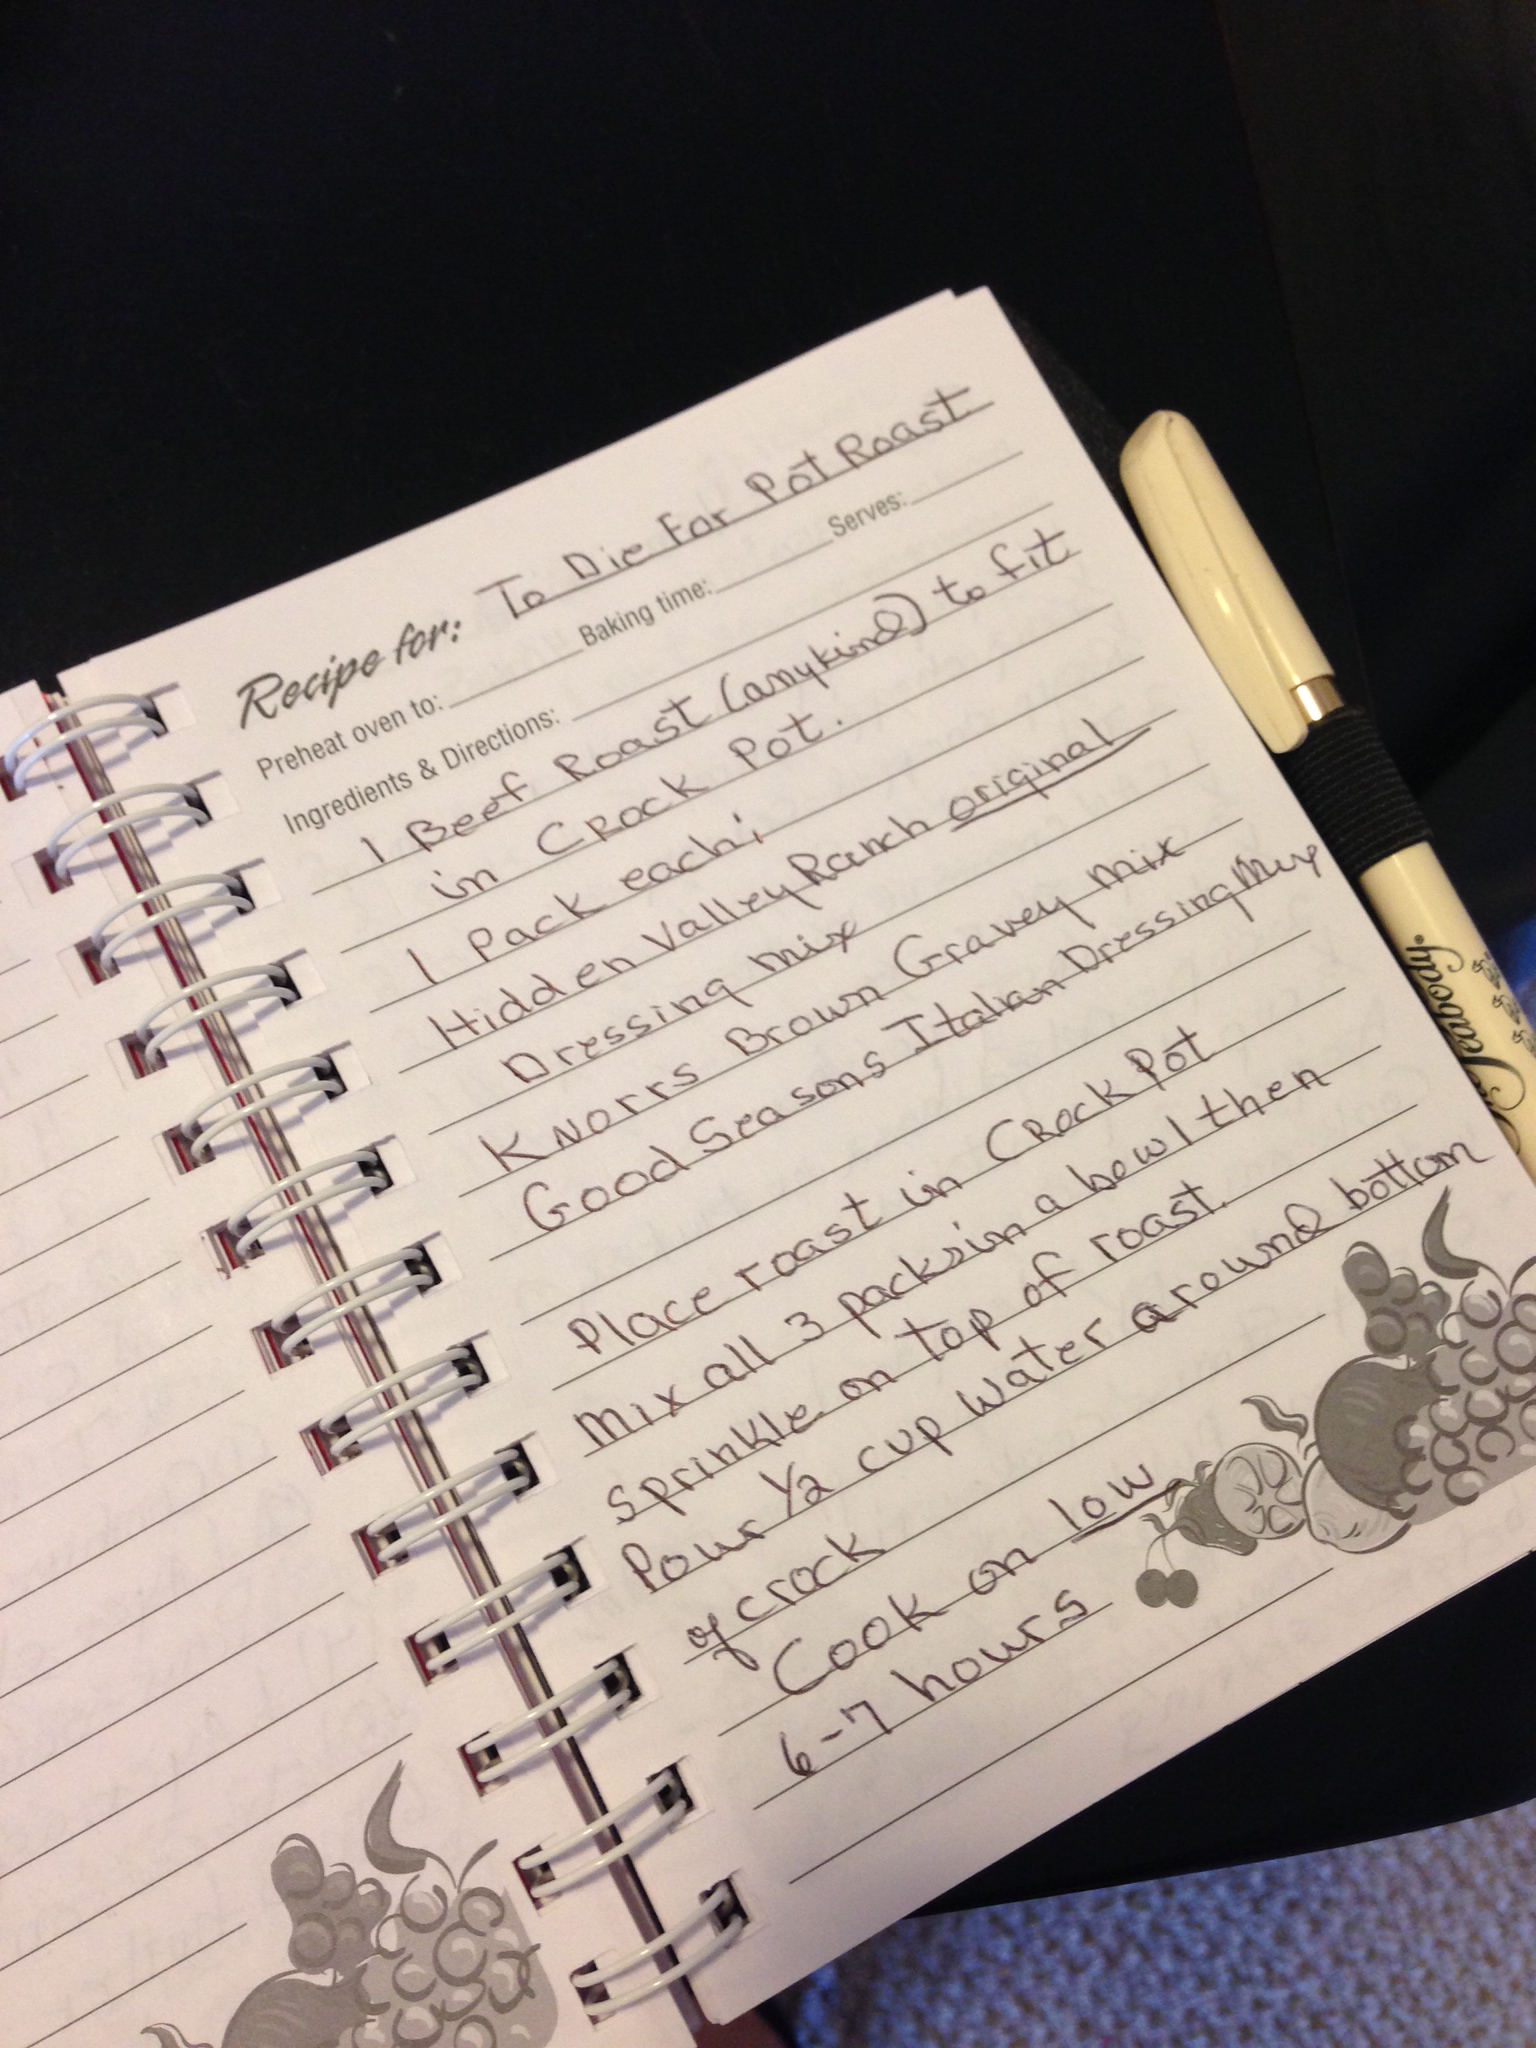 Recipe for: To Die For Pot Roast
Preheat oven to: Baking time: Serves:
Ingredients & Directions:
1 Beef Roast (any kind) to fit
in Crock Pot.
1 Pack each;
Hidden Valley Ranch original
Dressing mix
Knorrs Brown Gravey mix
Good Seasons Italian Dressing Mix
Place roast in Crock Pot
Mix all 3 packs in a bowl then
sprinkle on top of roast.
Pour 1/2 cup water around bottom
of crock
Cook on low
6-7 hours
Peabody